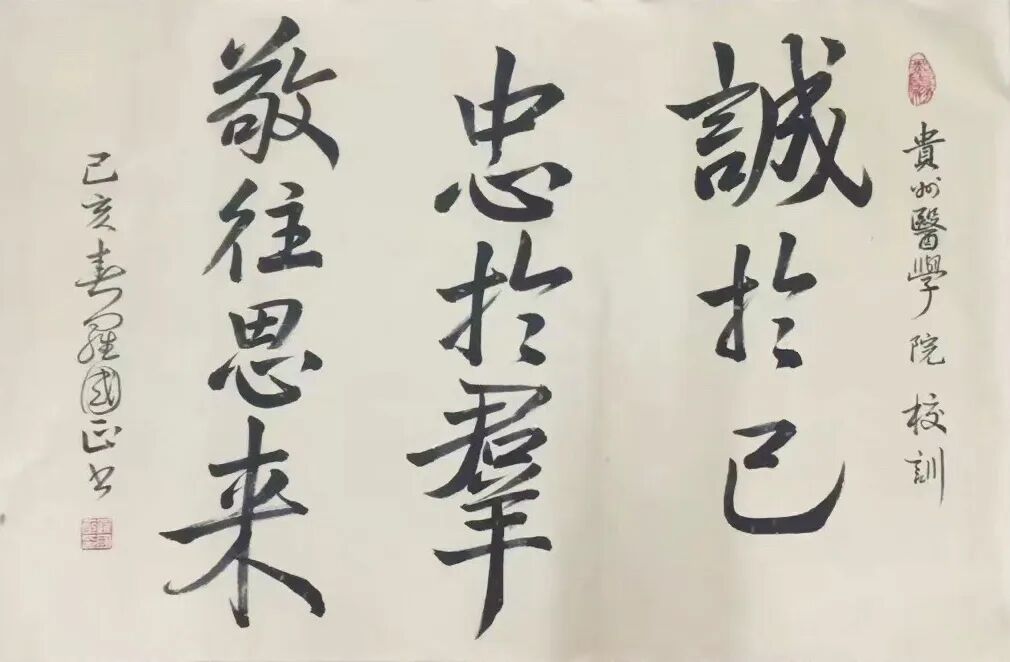 貴州醫學院校訓
誠於己
忠於羣
敬往思来
己亥春羅國正书